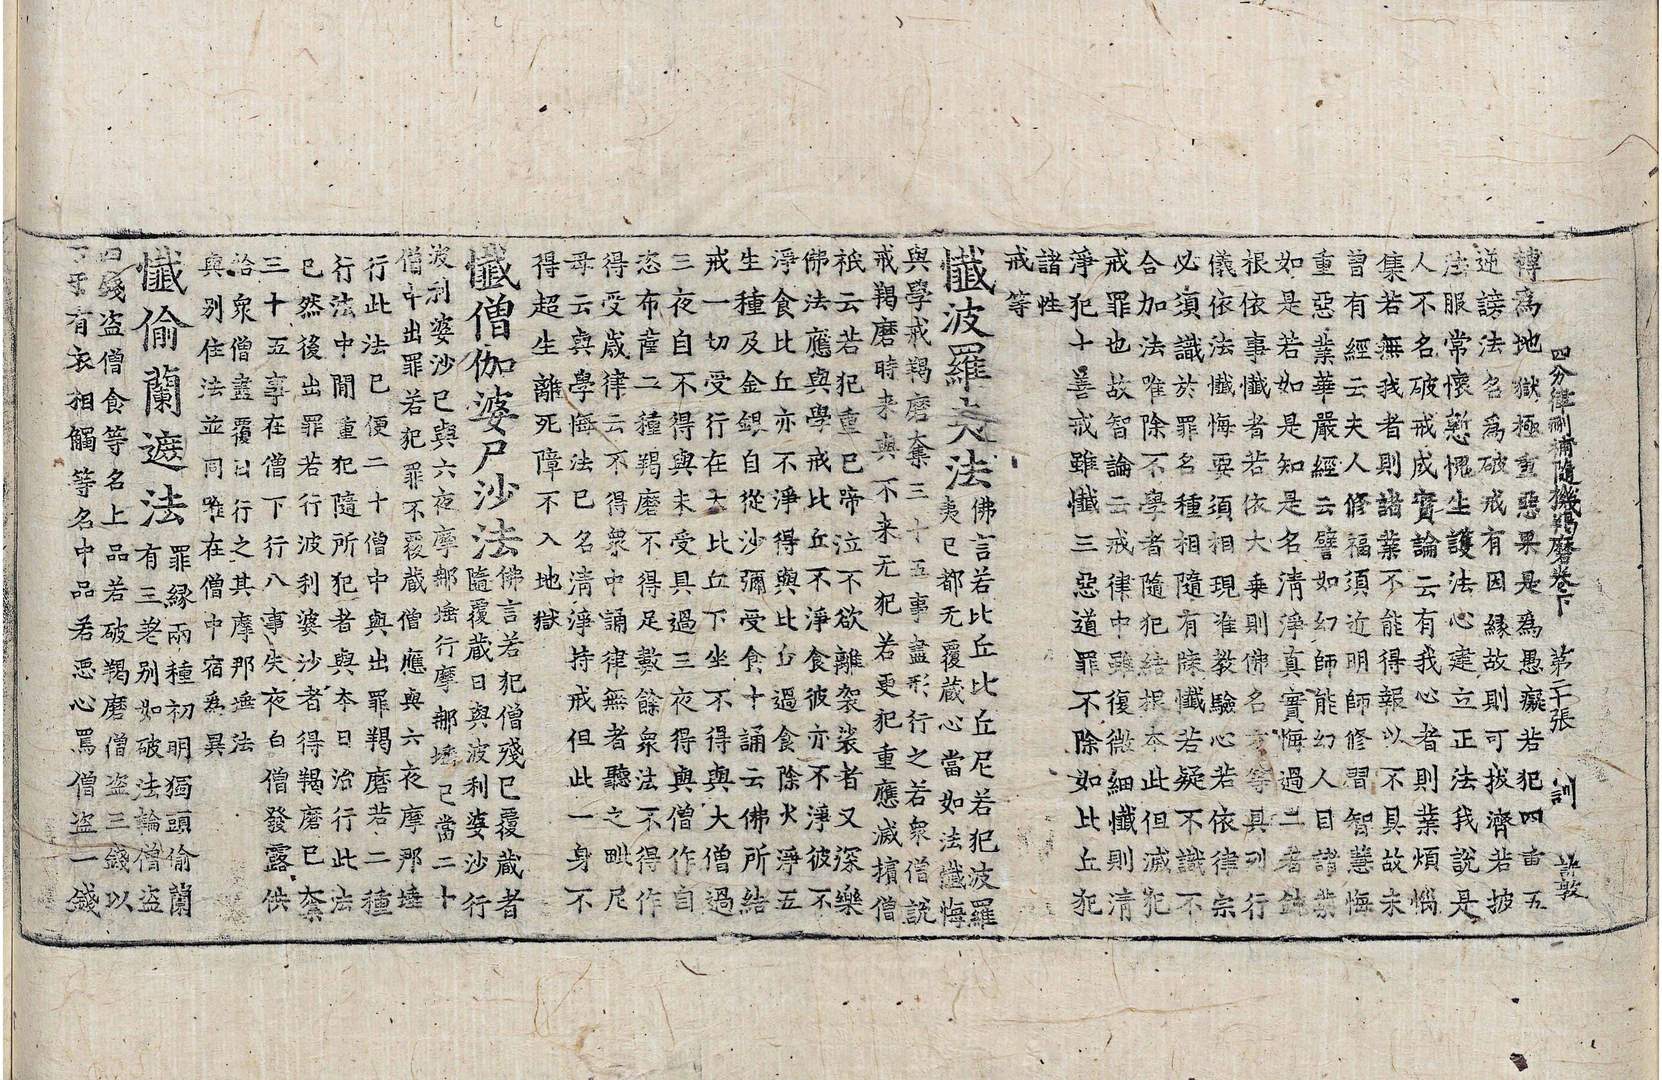 四分律刪補隨機羯磨卷下　第二十張　訓　許敦
轉爲地獄極重惡果是爲愚癡若犯四重五
逆謗法名爲破戒有因縁故則可拔濟若披
法服常懷慙愧生護法心建立正法我說是
人不名破戒成實論云有我心者則業煩惱
集若無我者則諸業不能得報以不具故未
曾有經云夫人修福須近明師修習智慧悔
重惡業華嚴經云譬如幻師能幻人目諸業
如是若如是知是名清淨真實悔過二者鈍
根依事懺者若依大乘則佛名方等具列行
儀依法懺悔要須相現准教驗心若依律宗
必須識於罪名種相隨有陳懺若疑不識不
合加法唯除不學者隨犯結根本此但滅犯
戒罪也故智論云戒律中雖復微細懺則清
淨犯十善戒雖懺三惡道罪不除如比丘犯
諸性
戒等
懺波羅夷法佛言若比丘比丘尼若犯波羅
夷已都无覆藏心當如法懺悔
與學戒羯磨奪三十五事盡形行之若衆僧說
戒羯磨時来與不来无犯若更犯重應滅擯僧
祇云若犯重已啼泣不欲離袈裟者又深樂
佛法應與學戒比丘不淨食彼亦不淨彼不
淨食比丘亦不淨得與比丘過食除火淨五
生種及金銀自從沙彌受食十誦云佛所結
戒一切受行在大比丘下坐不得與大僧過
三夜自不得與未受具過三夜得與僧作自
恣布薩二種羯磨不得足數餘衆法不得作
得受歲律云不得衆中誦律無者聽之毗尼
母云與學悔法已名清淨持戒但此一身不
得超生離死障不入地獄
懺僧伽婆尸沙法佛言若犯僧殘已覆藏者
隨覆藏日與波利婆沙行
波利婆沙已與六夜摩那埵行摩那埵已當二十
僧中出罪若犯罪不覆藏僧應與六夜摩那埵
行此法已便二十僧中與出罪羯磨若二種
行法中間重犯隨所犯者與本日治行此法
已然後出罪若行波利婆沙者得羯磨已奪
三十五事在僧下行八事失夜白僧發露供
給衆僧盡覆日行之其摩那埵法
與別住法並同唯在僧中宿爲異
懺偷蘭遮法罪縁兩種初明獨頭偷蘭
有三差別如破法輪僧盜
四錢盜僧食等名上品若破羯磨僧盜三錢以
下互有衣相觸等名中品若惡心罵僧盜一錢